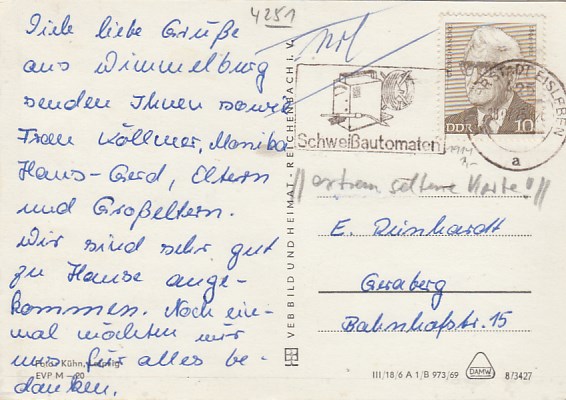 4251
Viele liebe Grüße
aus Wimmelburg
senden Ihnen sowie
Frau Köllmer, Monika
Hans-Gerd, Eltern
und Großeltern.
Wir sind sehr gut
zu Hause ange-
kommen. Noch ein-
mal möchten wir
uns für alles be-
danken.
Foto: Kühn, Leipzig
EVP M —20
VEB BILD UND HEIMAT · REICHENBACH I. V.
Schweißautomaten
EISLEBEN
a
DDR 10
//extrem seltene Karte!//
E. Reinhardt
Geraberg
Bahnhofstr. 15
III/18/6 A 1/B 973/69
DAMW
8/3427